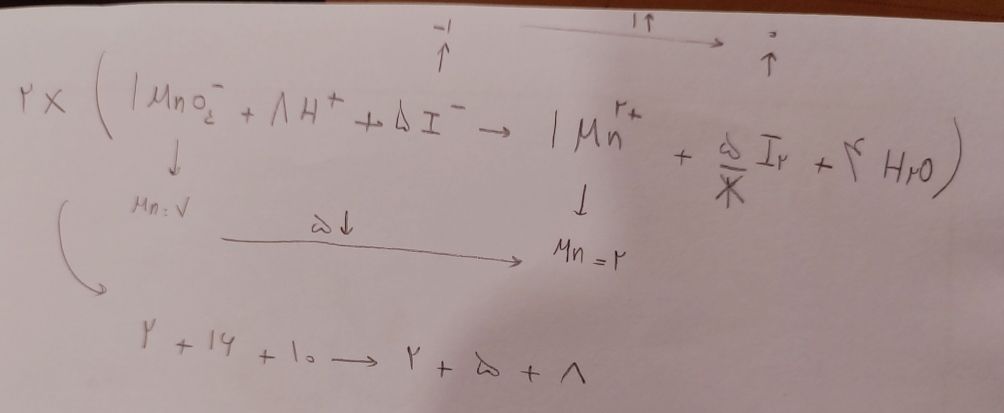 -1 → 1↑ → ۰
۲ × ( ۱ MnO₄⁻ + ۸ H⁺ + ۵ I⁻ → ۱ Mn²⁺ + ۵/۲ I₂ + ۴ H₂O )
Mn: ۷ → ۵↓ → Mn = ۲
۲ + ۱۶ + ۱۰ → ۲ + ۵ + ۸